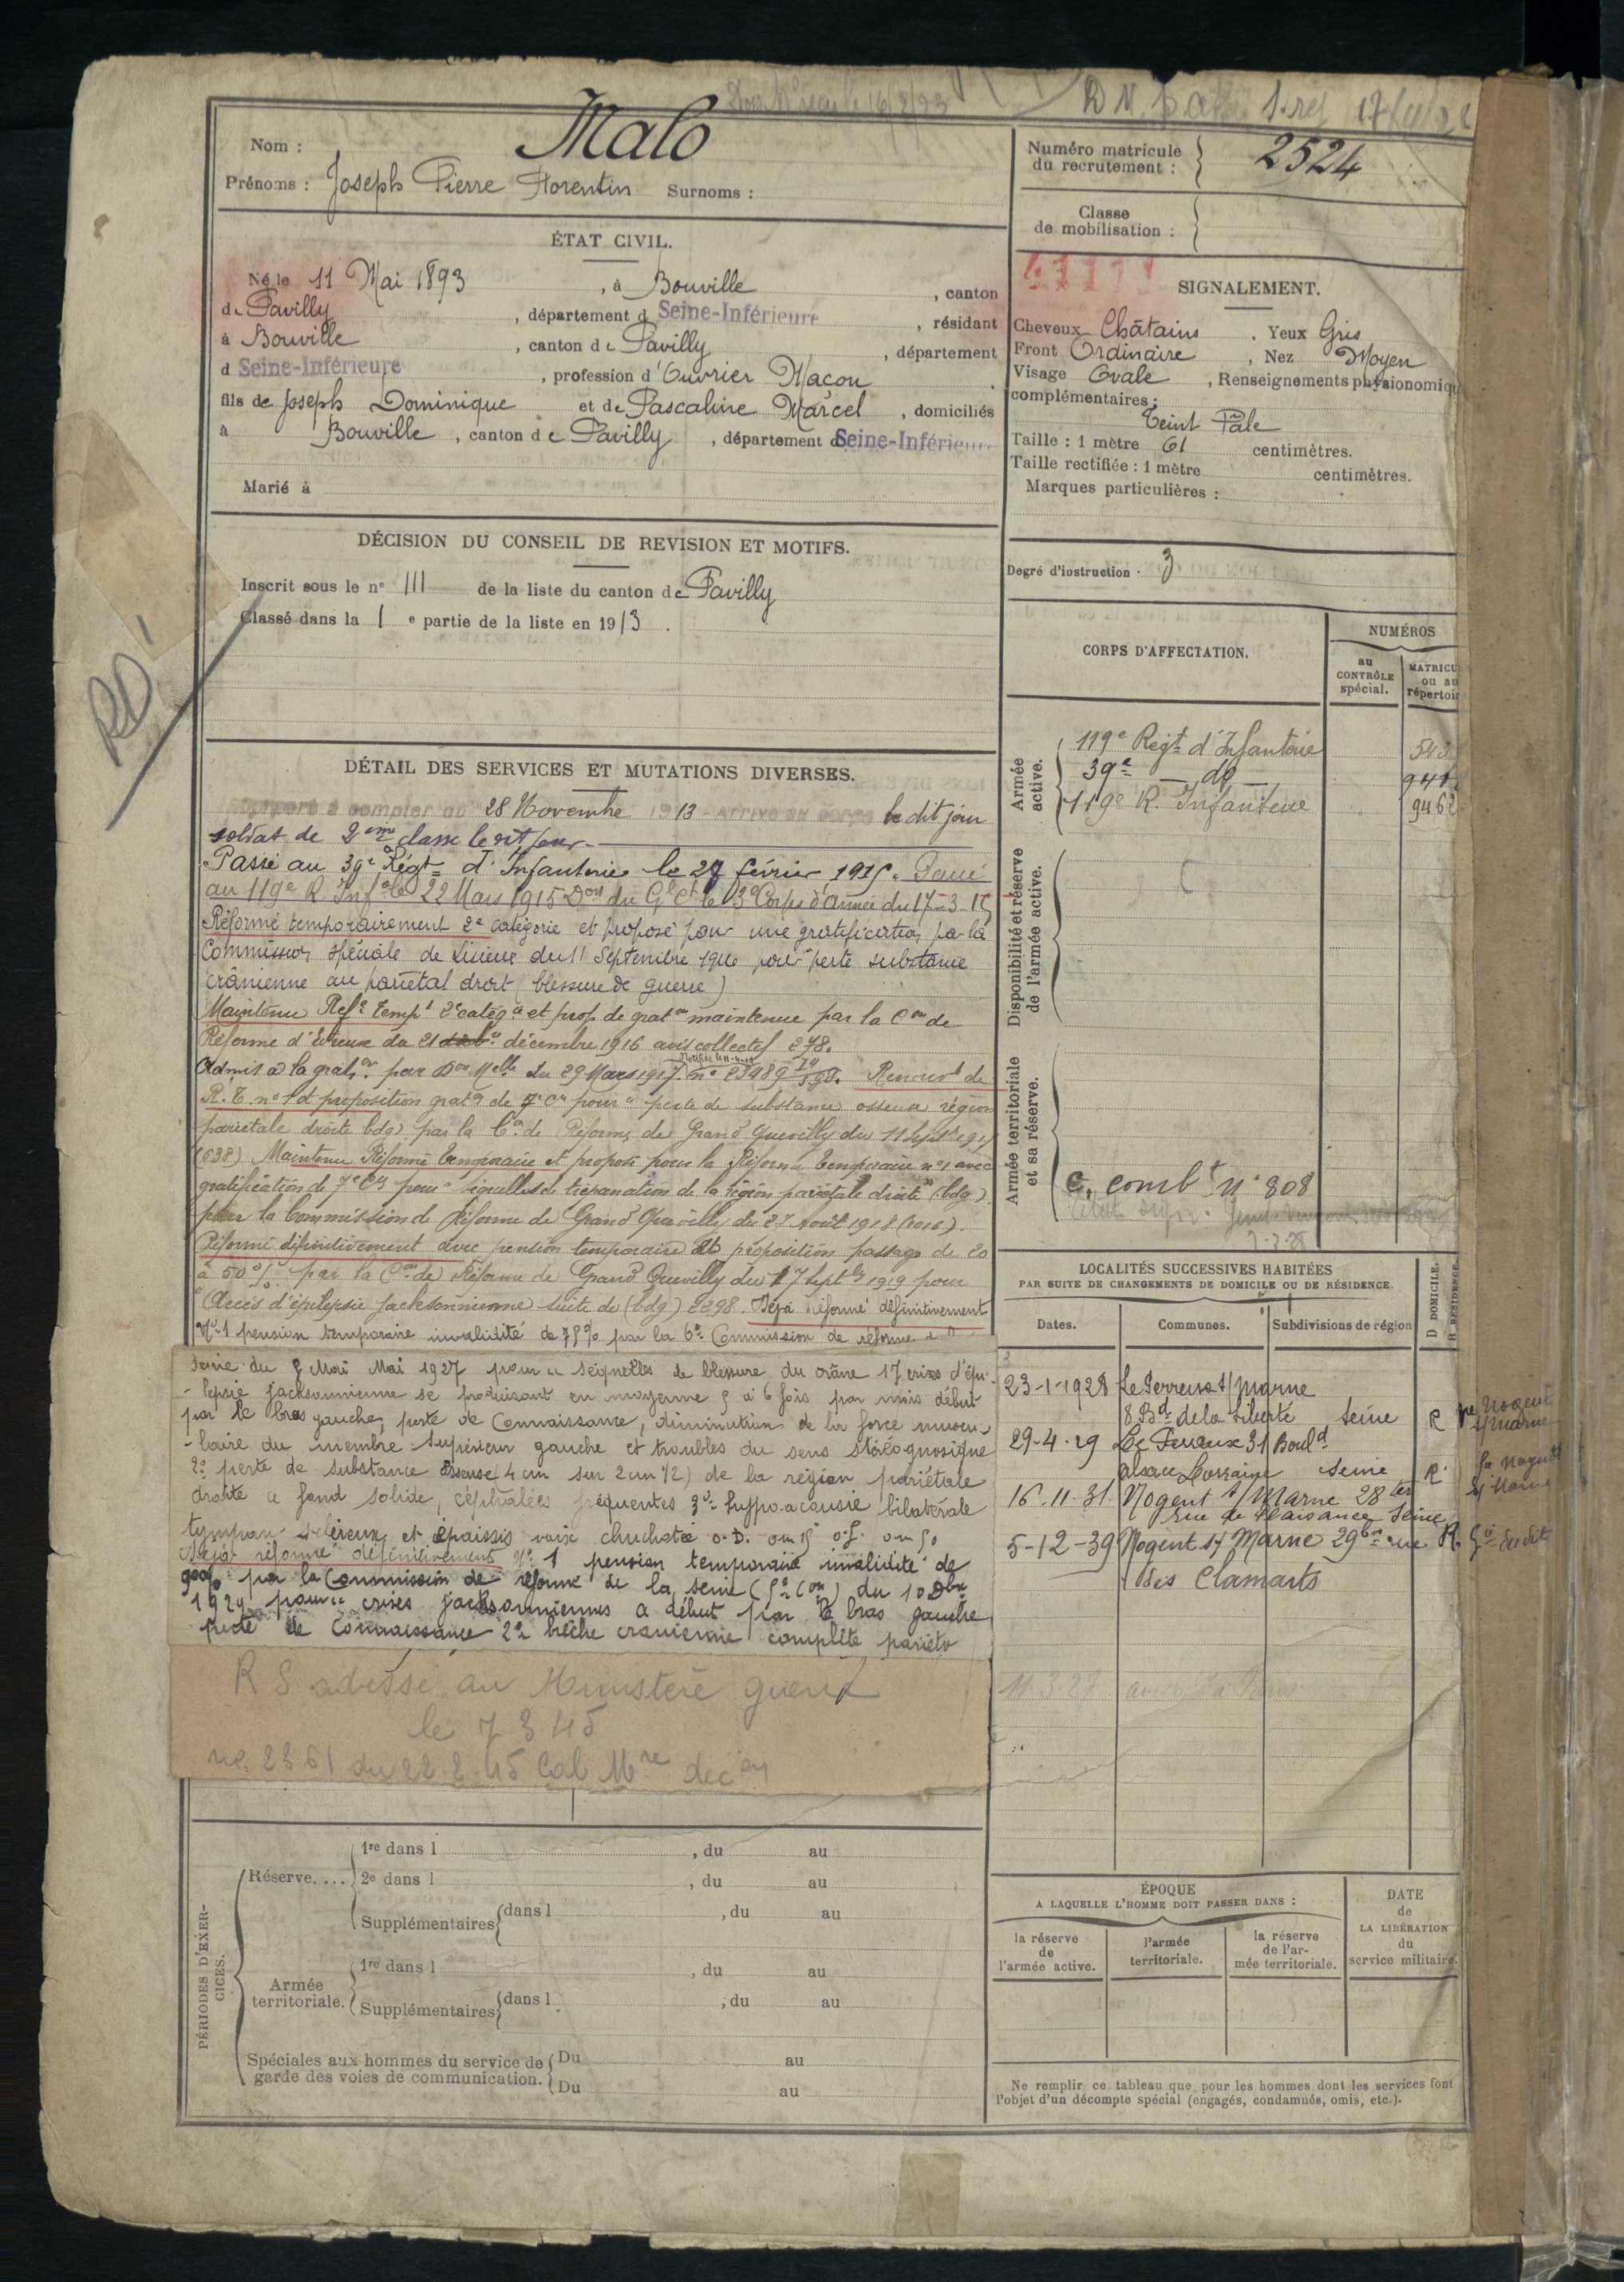 Nom : Malo
Prénoms : Joseph Pierre Florentin Surnoms :
Numéro matricule du recrutement : 2524
Classe de mobilisation :
ÉTAT CIVIL.
Né le 11 Mai 1893, à Bouville, canton
de Pavilly, département d Seine-Inférieure, résidant
à Bouville, canton de Pavilly, département
d Seine-Inférieure, profession d'Ouvrier Maçon
fils de Joseph Dominique et de Pascaline Marcel, domiciliés
à Bouville, canton de Pavilly, département de Seine-Inférieure
Marié à
SIGNALEMENT.
Cheveux Châtains, Yeux Gris
Front Ordinaire, Nez Moyen
Visage Ovale, Renseignements physionomiq
complémentaires :
Teint Pâle
Taille : 1 mètre 61 centimètres.
Taille rectifiée : 1 mètre centimètres.
Marques particulières :
Degré d'instruction. 3
DÉCISION DU CONSEIL DE REVISION ET MOTIFS.
Inscrit sous le n° 111 de la liste du canton de Pavilly
Classé dans la 1e partie de la liste en 1913.
RD
DÉTAIL DES SERVICES ET MUTATIONS DIVERSES.
à compter du 28 Novembre 1913 - Arrivé au corps le dit jour
soldat de 2eme classe le dit jour
Passé au 39e Régt d'Infanterie le 27 février 1915. Passé
au 119e R. Infie le 22 Mars 1915 Don du Gl Ct le 3e Corps d'armée du 17-3-15
Réformé temporairement 2e catégorie et proposé pour une gratification par la
Commission spéciale de Lisieux du 11 Septembre 1916 pour perte substance
crânienne au pariétal droit (blessure de guerre)
Maintenu Refé tempt 2e catégie et prop de graton maintenue par la Con de
Réforme d'Evreux du 21 décembre 1916 avis collectif 278.
Admis à la graton par Don Melle du 29 Mars 1917. n° 23989 Renouvt de
R. T. n° 1 et proposition graton de 7e Cie pour "perte de substance osseuse région
pariétale droite bdg) par la Con de Réforme de Grand Quevilly du 11 Septbre 1917
(638) Maintenu Réformé temporaire et proposé pour la Réforme temporaire n° 1 avec
gratification de 7e Cie pour "séquelles de trépanation de la région pariétale droite" (bdg)
par la Commission de Réforme de Grand Quevilly du 27 Août 1918 (1016).
Réformé définitivement avec pension temporaire et proposition passage de 20
à 50 % par la Con de Réforme de Grand Quevilly du 17 Septbre 1919 pour
"Accès d'épilepsie jacksonnienne) suite de (bdg) 2298. Déjà réformé définitivement
N° 1 pension temporaire invalidité de 75% par la 6e Commission de réforme
Seine du 5 Mai 1927 pour " séquelles de blessure du crâne 1° crises d'épi-
-lepsie jacksonnienne se produisant en moyenne 5 à 6 fois par mois début
par le bras gauche, perte de connaissance, diminution de la force muscu-
-laire du membre supérieur gauche et troubles du sens stéréognosique
2° perte de substance osseuse (4 cm sur 2 cm 1/2) de la région pariétale
droite à fond solide, céphalées fréquentes 3° hypo-acousie bilatérale
tympan scléreux et épaissis voix chuchotée O.D. O.G. 0m50
Déjà réformé définitivement n° 1 pension temporaire invalidité de
90% par la Commission de réforme de la Seine (5e Con) du 10 Dbre
1929 pour " crises jacksonniennes à début par le bras gauche
perte de connaissance 2° brèche cranienne complète pariéto
R S adressé au Ministère guerre
le 7 3 45
n° 2361 du 22.2.45 Cab Mre
CORPS D'AFFECTATION.
NUMÉROS
au CONTRÔLE spécial.
MATRICU ou au répertoi
Armée active.
119e Régt d'Infanterie 543
39e — do — 941
119e R. Infanterie 9462
Disponibilité et réserve de l'armée active.
Armée territoriale et sa réserve.
C. combt n° 808
LOCALITÉS SUCCESSIVES HABITÉES
PAR SUITE DE CHANGEMENTS DE DOMICILE OU DE RÉSIDENCE.
Dates. Communes. Subdivisions de région D DOMICILE. R RÉSIDENCE.
23-1-1928 Le Perreux s/Marne
8 Bd de la Liberté Seine R
29-4-29 Le Perreux 31 Bould
Alsace Lorraine Seine R
16.11.31. Nogent s/Marne 28 ter
rue de Plaisance Seine
5-12-39 Nogent s/ Marne 29 bis rue R.
des Clamarts
11.3.27
PÉRIODES D'EXERCICES.
Réserve.... 1re dans l , du au
2e dans l , du au
Supplémentaires dans l , du au
Armée territoriale. 1re dans l , du au
Supplémentaires dans l , du au
Spéciales aux hommes du service de garde des voies de communication. Du au
Du au
ÉPOQUE
A LAQUELLE L'HOMME DOIT PASSER DANS :
la réserve de l'armée active.
l'armée territoriale.
la réserve de l'armée territoriale.
DATE de LA LIBÉRATION du service militaire.
Ne remplir ce tableau que pour les hommes dont les services font
l'objet d'un décompte spécial (engagés, condamnés, omis, etc.).